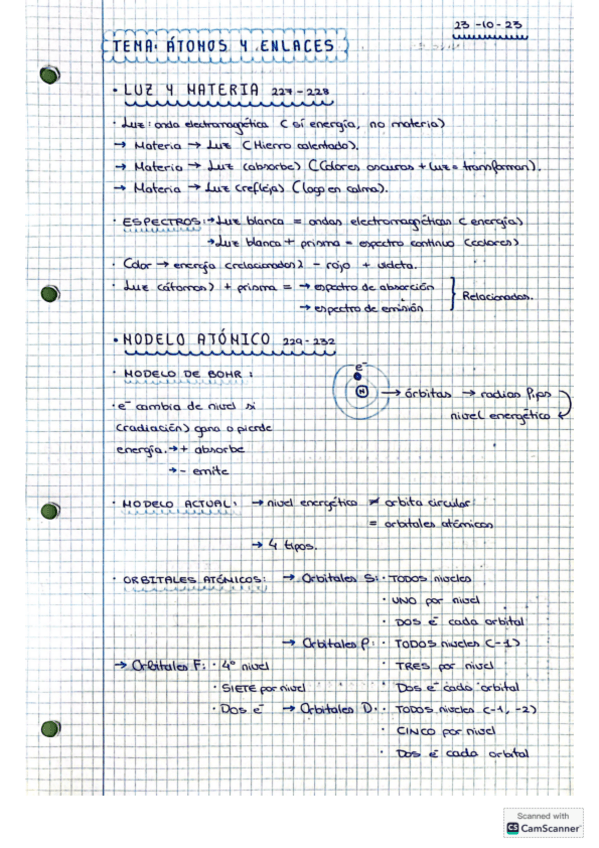 23-10-23
TEMA: ÁTOMOS Y ENLACES
· LUZ Y MATERIA 227-228
· Luz: onda electromagnética (sí energía, no materia)
→ Materia → Luz (Hierro calentado).
→ Materia → Luz (absorbe) (Colores oscuros + luz = transforman).
→ Materia → Luz (refleja) (lago en calma).
· ESPECTROS: → Luz blanca = ondas electromagnéticas (energía)
→ Luz blanca + prisma = espectro continuo (colores)
· Color → energía (relacionados) - rojo + violeta.
· Luz (átomos) + prisma = → espectro de absorción
→ espectro de emisión
Relacionados.
· MODELO ATÓMICO 229-232
· MODELO DE BOHR:
e⁻
N → órbitas → radios fijos
nivel energético
· e⁻ cambia de nivel si
(radiación) gana o pierde
energía. → + absorbe
→ - emite
· MODELO ACTUAL: → nivel energético ≠ orbita circular
= orbitales atómicos
→ 4 tipos.
· ORBITALES ATÓMICOS: → Orbitales S: · TODOS niveles
· UNO por nivel
· DOS e⁻ cada orbital
→ Orbitales P: · TODOS niveles (-1)
· TRES por nivel
· Dos e⁻ cada orbital
→ Orbitales F: · 4º nivel
· SIETE por nivel
· Dos e⁻
→ Orbitales D: · TODOS niveles (-1, -2)
· CINCO por nivel
· Dos e⁻ cada orbital
Scanned with
CS CamScanner